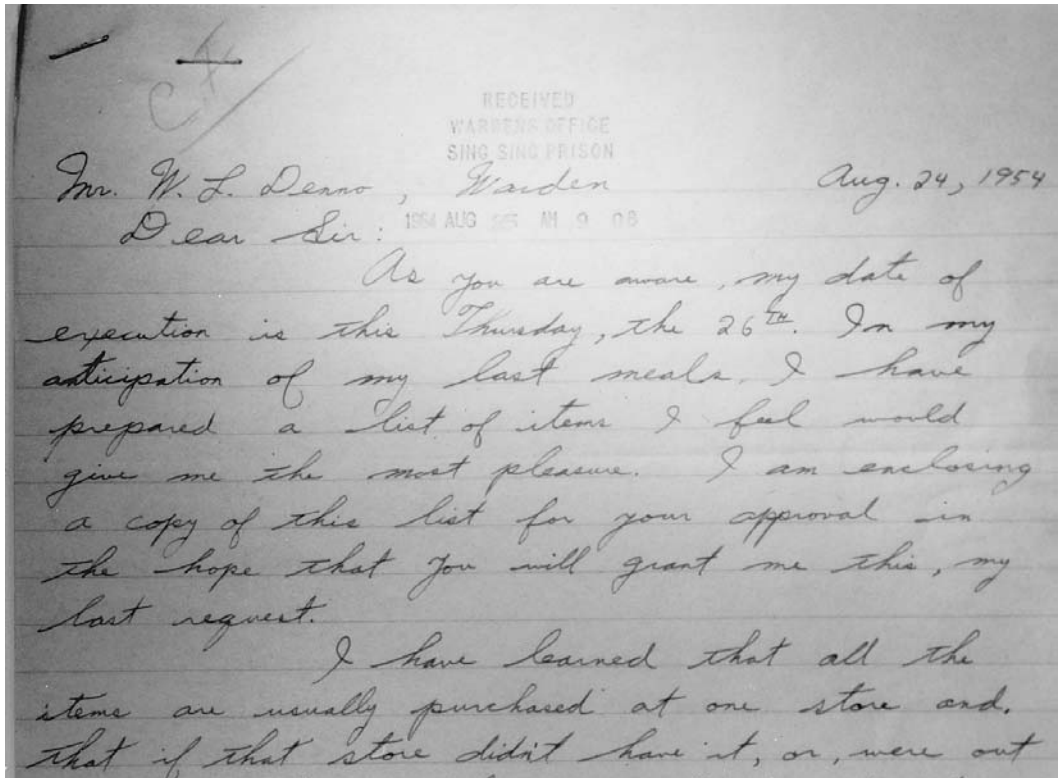 C.F.
RECEIVED
WARDENS OFFICE
SING SING PRISON
Mr. W. L. Denno, Warden Aug. 24, 1954
Dear Sir: 1954 AUG 25 AM 9 08
As you are aware, my date of
execution is this Thursday, the 26TH. In my
anticipation of my last meals, I have
prepared a list of items I feel would
give me the most pleasure. I am enclosing
a copy of this list for your approval in
the hope that you will grant me this, my
last request.
I have learned that all the
items are usually purchased at one store and,
that if that store didn't have it, or, were out